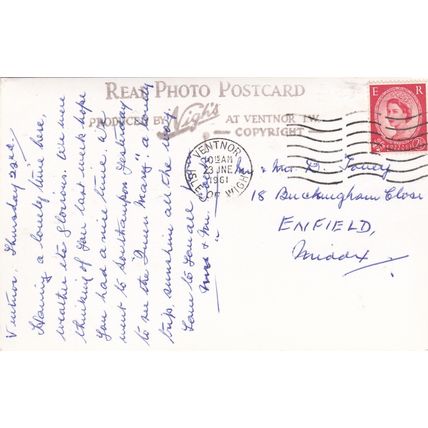 REAL PHOTO POSTCARD
PRODUCED BY Nigh's AT VENTNOR I.W.
COPYRIGHT
E R
VENTNOR
10 15 AM
23 JNE
1961
I. OF WIGHT
Ventnor, Thursday 22nd.
Having a lovely time here,
weather its glorious. We were
thinking of you last week hope
you had a nice time, we
went to Southampton yesterday
to see the "Queen Mary" a lovely
trip, sunshine all the way.
Love to you all
Mr & Mrs
18 Buckingham Close
ENFIELD,
Middx